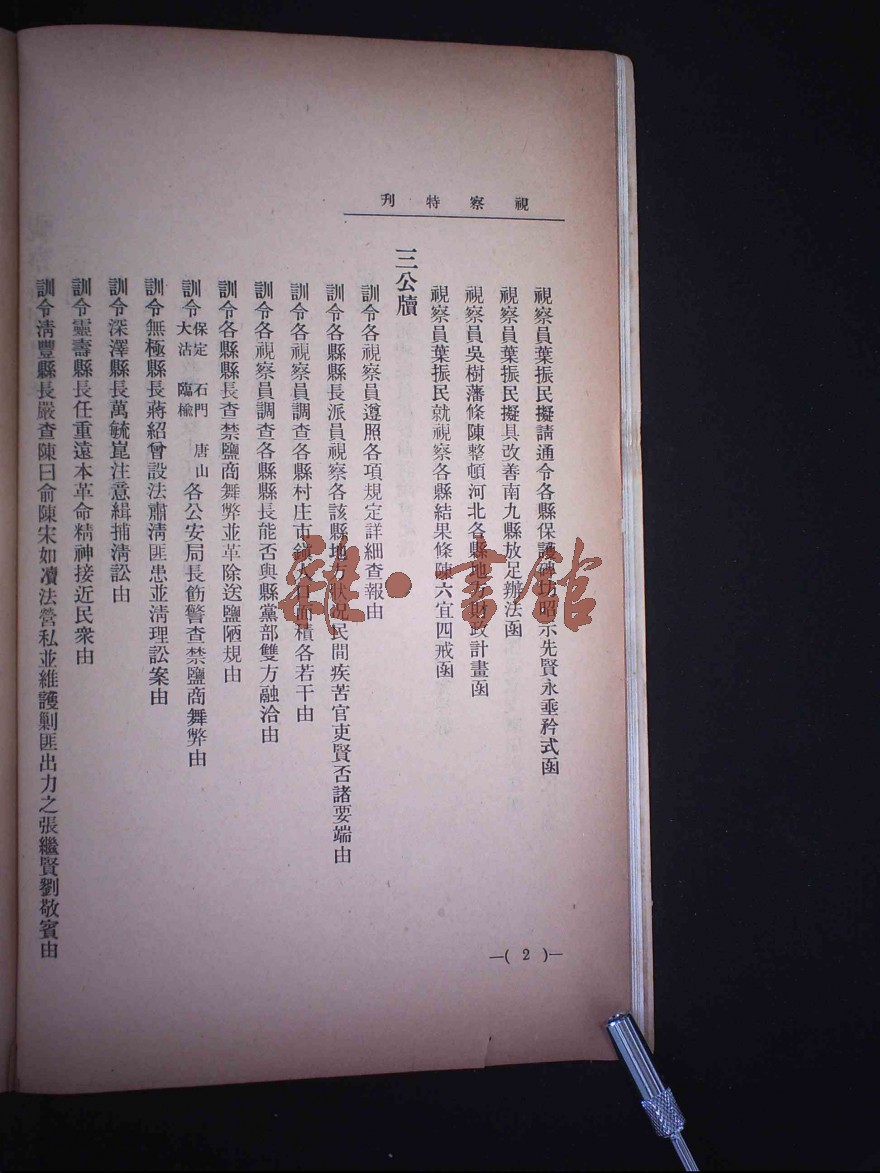 視察特刊
視察員葉振民擬請通令各縣保護碑坊昭示先賢永垂矜式函
視察員葉振民擬具改善南九縣放足辦法函
視察員吳樹藩條陳整頓河北各縣地方財政計畫函
視察員葉振民就視察各縣結果條陳六宜四戒函
三公牘
訓令各視察員遵照各項規定詳細查報由
訓令各縣縣長派員視察各該縣地方狀況民間疾苦官吏賢否諸要端由
訓令各視察員調查各縣村庄市鎮人口面積各若干由
訓令各視察員調查各縣縣長能否與縣黨部雙方融洽由
訓令各縣縣長查禁鹽商舞弊並革除送鹽陋規由
訓令保定 石門 唐山 大沽 臨榆 各公安局長飭警查禁鹽商舞弊由
訓令無極縣長蔣紹曾設法肅淸匪患並淸理訟案由
訓令深澤縣長萬毓崑注意緝捕淸訟由
訓令靈壽縣長任重遠本革命精神接近民衆由
訓令淸豐縣長嚴查陳曰俞陳宋如凟法營私並維護剿匪出力之張繼賢劉敬賓由
—( 2 )—
雜·書館